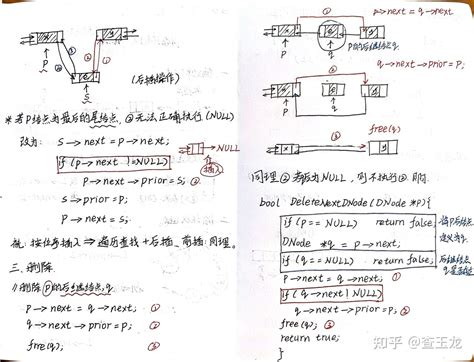 P
S
(后插操作)
* 若P结点为最后的尾结点,②无法正确执行(NULL)
改为:
S→next = P→next;
if (P→next != NULL)
→NULL
P→next→prior = S; ②
S→prior = P;
P→next = S;
插入
按位序插入 ⇒ 遍历查找 + 后插、前插:同理。
三、删除
//删除P的后继结点q
P→next = q→next; ①
q→next→prior = P; ②
free(q); ③
①
p→next = q→next
P
q
P的后继结点q
q→next→prior = P;
②
P
q
free(q)
③
同理②若为NULL,则不执行②即可
bool DeleteNextDNode(DNode *P){
if (P == NULL) return false;
DNode *q = p→next;
if (q == NULL) return false;
P→next = q→next; ①
if (q→next != NULL)
q→next→prior = P; ②
free(q); ③
return true;
}
知乎 @查王龙